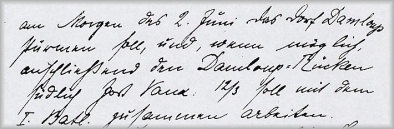 am Morgen des 2. Juni das Dorf Damloup
stürmen soll, und, wenn möglich,
anschließend den Damloup-Rücken
südlich Fort Vaux. 12/3 soll mit dem
I. Batl. zusammen arbeiten.